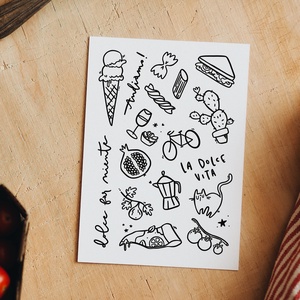 dolce far niente
LA DOLCE
VITA